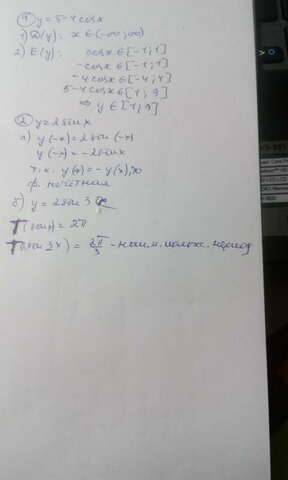 ① y = 5-4cosx
1) D(y): x ∈ (-∞; ∞)
2) E(y): cosx ∈ [-1; 1]
-cosx ∈ [-1; 1]
-4cosx ∈ [-4; 4]
5-4cosx ∈ [1; 9]
⇒ y ∈ [1; 9]
② y = 2sinx
а) y(-x) = 2sin(-x)
y(-x) = -2sinx
т.к. y(x) = -y(x), то
ф. нечетная
б) y = 2sin3x
T(sinx) = 2π
T(sin3x) = 2π/3 - наим. полож. период